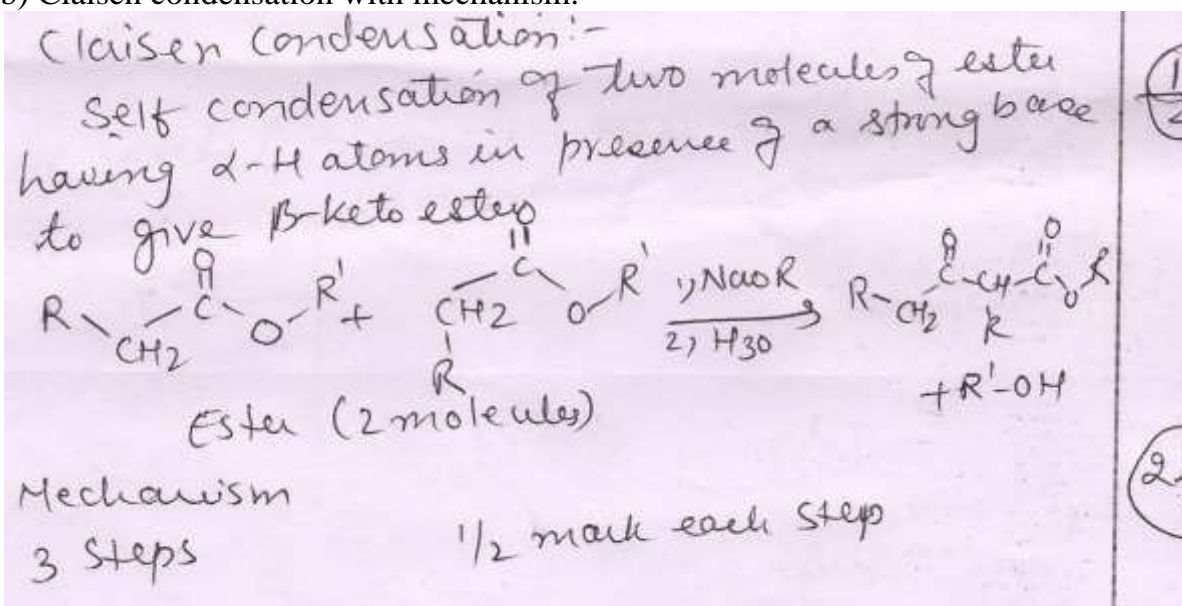 b) Claisen condensation with mechanism.
Claisen Condensation:-
Self condensation of two molecules of ester
having α-H atoms in presence of a strong base
to give β-keto ester
R CH2 C O O R' + CH2 R C O O R' 1, NaOR 2, H3O R-CH2 C O -CH R -C O O R
+ R'-OH
Ester (2 molecules)
Mechanism
3 steps 1/2 mark each step